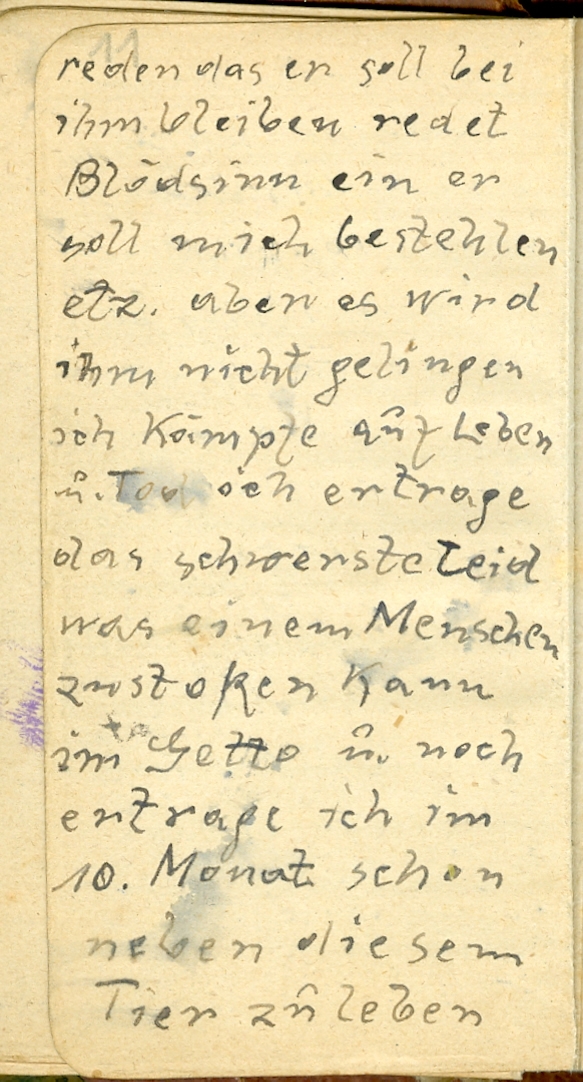 11
reden das er soll bei
ihm bleiben redet
Blödsinn ein er
soll mich bestehlen
etz. aber es wird
ihm nicht gelingen
ich Kämpfe aûf Leben
û. Tod ich ertrage
das schwerste Leid
was einem Menschen
zustoßen Kann
im Getto û. noch
ertrage ich im
10. Monat schon
neben diesem
Tier zû leben